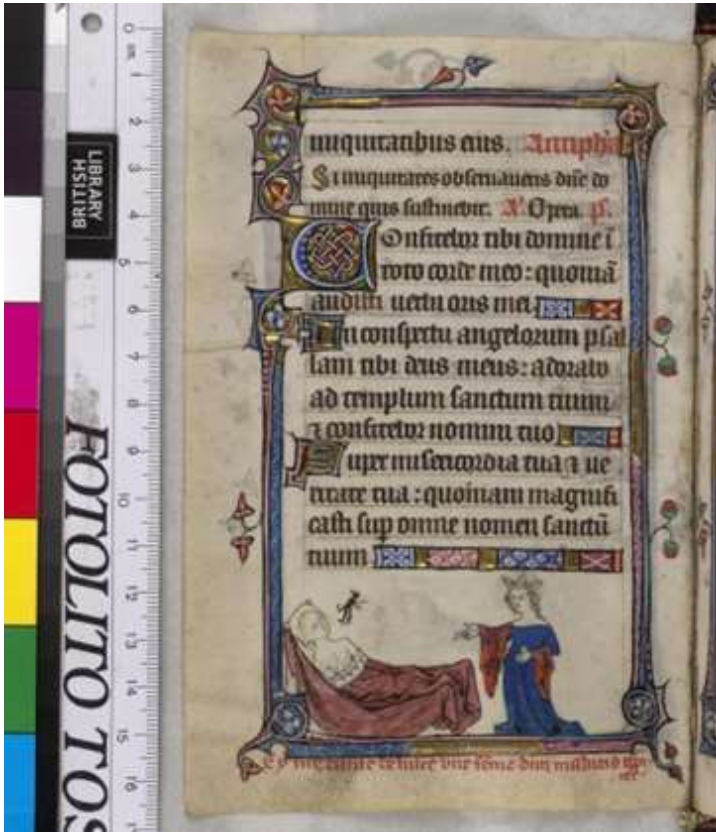 BRITISH
LIBRARY
FOTOLITO TOS
0 cm 1 2 3 4 5 6 7 8 9 10 11 12 13 14 15 16 17
iniquitatibus eius. Antiph'a
Si iniquitates obseruaueris dn̄e do
mine quis sustinebit. A'. Opera p̄.
Onfitebor tibi domine ī
toto corde meo: quoniā
audisti uerba oris mei.
In conspectu angelorum psal
lam tibi deus meus: adorabo
ad templum sanctum tuum
⁊ confitebor nomini tuo
Super misericordia tua ⁊ ue
ritate tua: quoniam magnifi
casti sup omne nomen sanctū
tuum